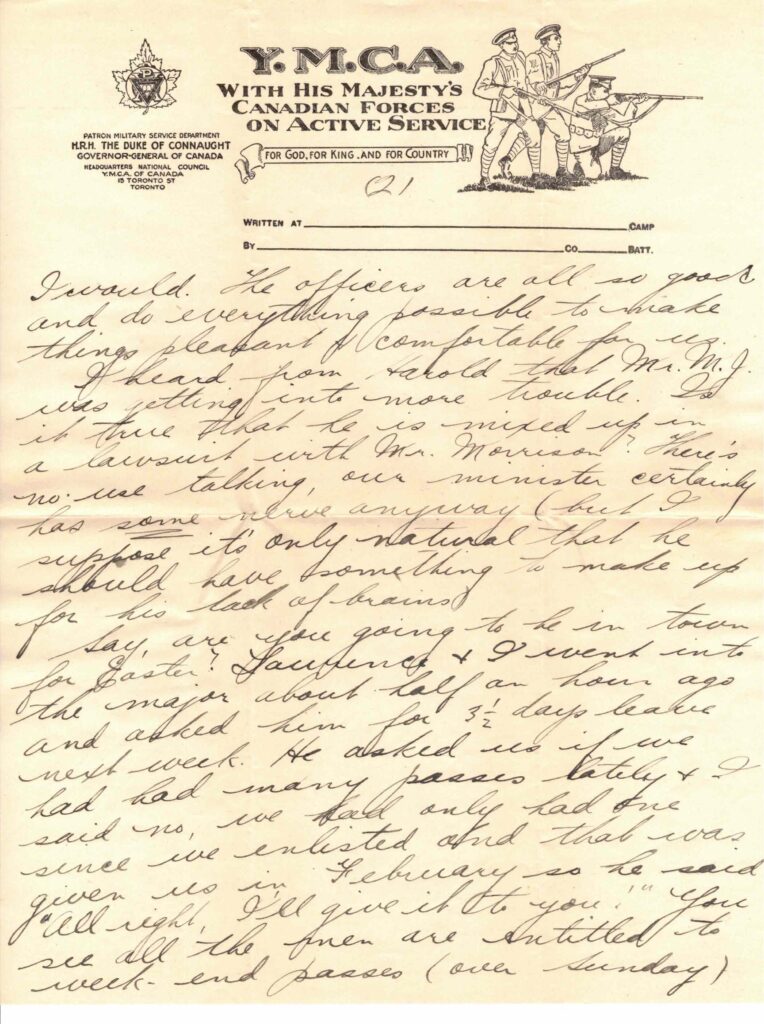 Y.M.C.A.
WITH HIS MAJESTY'S
CANADIAN FORCES
ON ACTIVE SERVICE
FOR GOD, FOR KING, AND FOR COUNTRY
PATRON MILITARY SERVICE DEPARTMENT
H.R.H. THE DUKE OF CONNAUGHT
GOVERNOR-GENERAL OF CANADA
HEADQUARTERS NATIONAL COUNCIL
Y.M.C.A. OF CANADA
15 TORONTO ST
TORONTO
WRITTEN AT CAMP
BY CO. BATT.
I would. The officers are all so good
and do everything possible to make
things pleasant & comfortable for us.
I heard from Harold that Mr. M.J.
was getting into more trouble. Is
it true that he is mixed up in
a lawsuit with Mr. Morrison? There's
no use talking, our minister certainly
has some nerve anyway (but I
suppose it's only natural that he
should have something to make up
for his lack of brains)
Say, are you going to be in town
for Easter? Lawrence & I went into
the major about half an hour ago
and asked him for 3½ days leave
next week. He asked us if we
had had many passes lately & I
said no, we had only had one
since we enlisted and that was
given us in February so he said
"All right, I'll give it to you!" You
see all the men are entitled to
week-end passes (over Sunday)